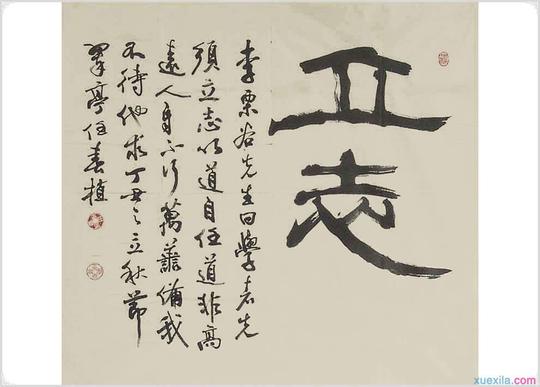 立志
李栗谷先生曰學者先
須立志以道自任道非高
遠人自不行萬善備我
不待他求丁丑之立秋節
翠亭任春植
xuexila.com